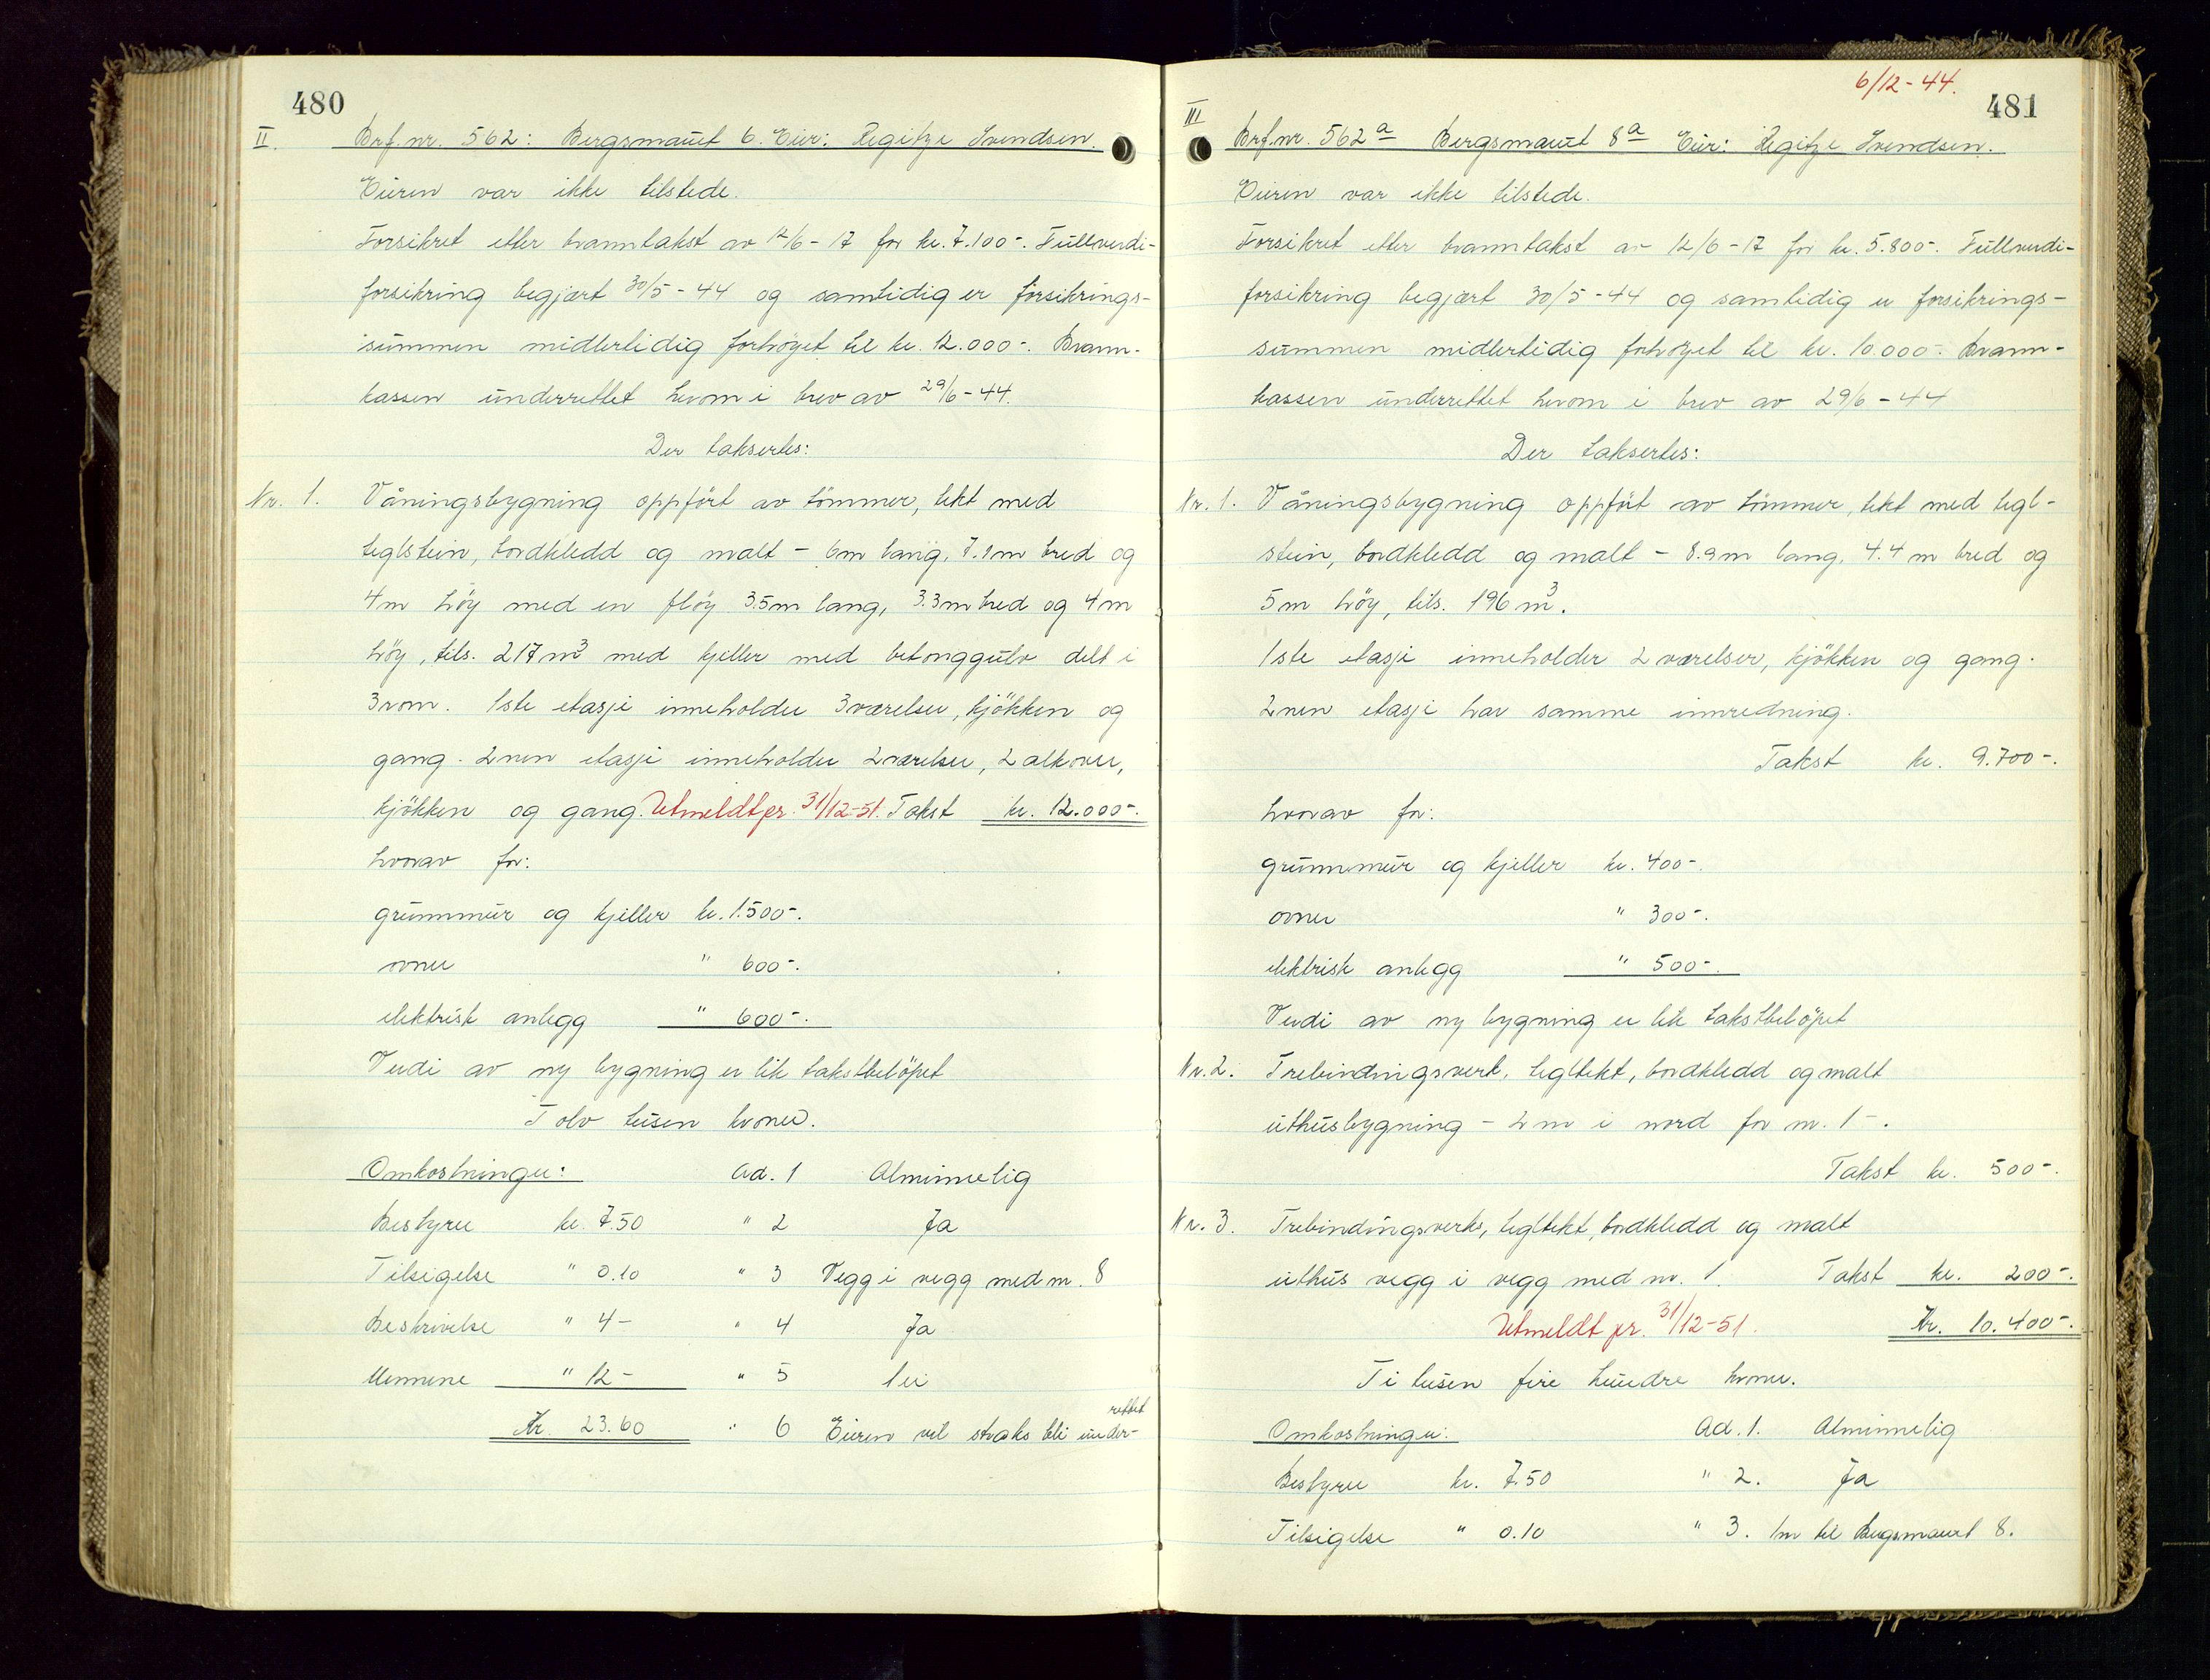 480
II. Brf.nr. 562: Bergsmauet 6. Eier: Regitze Svendsen.
Eieren var ikke tilstede.
Forsikret etter branntakst av 12/6-17 for kr. 7.100-. Fullverdi-
forsikring begjært 30/5-44 og samtidig er forsikrings-
summen midlertidig forhöyet til kr. 12.000-. Brann-
kassen underrettet herom i brev av 29/6-44.
Der takseres:
Nr. 1. Våningsbygning oppfört av tömmer, tekt med
teglstein, bordkledd og malt - 6m lang, 7.1m bred og
4m höy med en flöy 3.5m lang, 3.3m bred og 4m
höy, tils. 217 m³ med kjeller med betonggulv delt i
3 rom. 1ste etasje inneholder 3 værelser, kjökken og
gang. 2nen etasje inneholder 2 værelser, 2 alkover,
kjökken og gang. Utmeldt pr. 31/12-51. Takst kr. 12.000-.
hvorav for:
grunnmur og kjeller kr. 1.500-.
ovner " 600-.
elektrisk anlegg " 600-.
Verdi av ny bygning er lik takstbelöpet
Tolv tusen kroner.
Omkostninger: Ad. 1 Alminnelig
Bestyrer kr. 7.50 " 2 Ja
Tilsigelse " 0.10 " 3 Vegg i vegg med nr. 8
Beskrivelse " 4- " 4 Ja
Mennene " 12- " 5 Nei
Kr. 23.60 " 6 Eieren vil straks bli under-
rettet
6/12-44.
481
III Brf.nr. 562a Bergsmauet 8a Eier: Regitze Svendsen.
Eieren var ikke tilstede.
Forsikret etter branntakst av 12/6-17 for kr. 5.800-. Fullverdi-
forsikring begjært 30/5-44 og samtidig er forsikrings-
summen midlertidig forhöyet til kr. 10.000-. Brann-
kassen underrettet herom i brev av 29/6-44
Der takseres:
Nr. 1. Våningsbygning oppfört av tömmer, tekt med tegl-
stein, bordkledd og malt - 8.9m lang, 4.4 m bred og
5m höy, tils. 196 m³.
1ste etasje inneholder 2 værelser, kjökken og gang.
2nen etasje har samme innredning.
Takst kr. 9.700-.
hvorav for:
grunnmur og kjeller kr. 400-.
ovner " 300-.
elektrisk anlegg " 500-.
Verdi av ny bygning er lik takstbelöpet
Nr. 2. Trebindingsverk, tegltekt, bordkledd og malt
uthusbygning - 2 m i nord for nr. 1-.
Takst kr. 500-.
Nr. 3. Trebindingsverks, tegltekt, bordkledd og malt
uthus vegg i vegg med nr. 1. Takst kr. 200-.
Utmeldt pr. 31/12-51. Kr. 10.400-.
Ti tusen fire hundre kroner.
Omkostninger: Ad. 1. Alminnelig
Bestyrer kr. 7.50 " 2. Ja
Tilsigelse " 0.10 " 3. 1m til Bergsmauet 8.